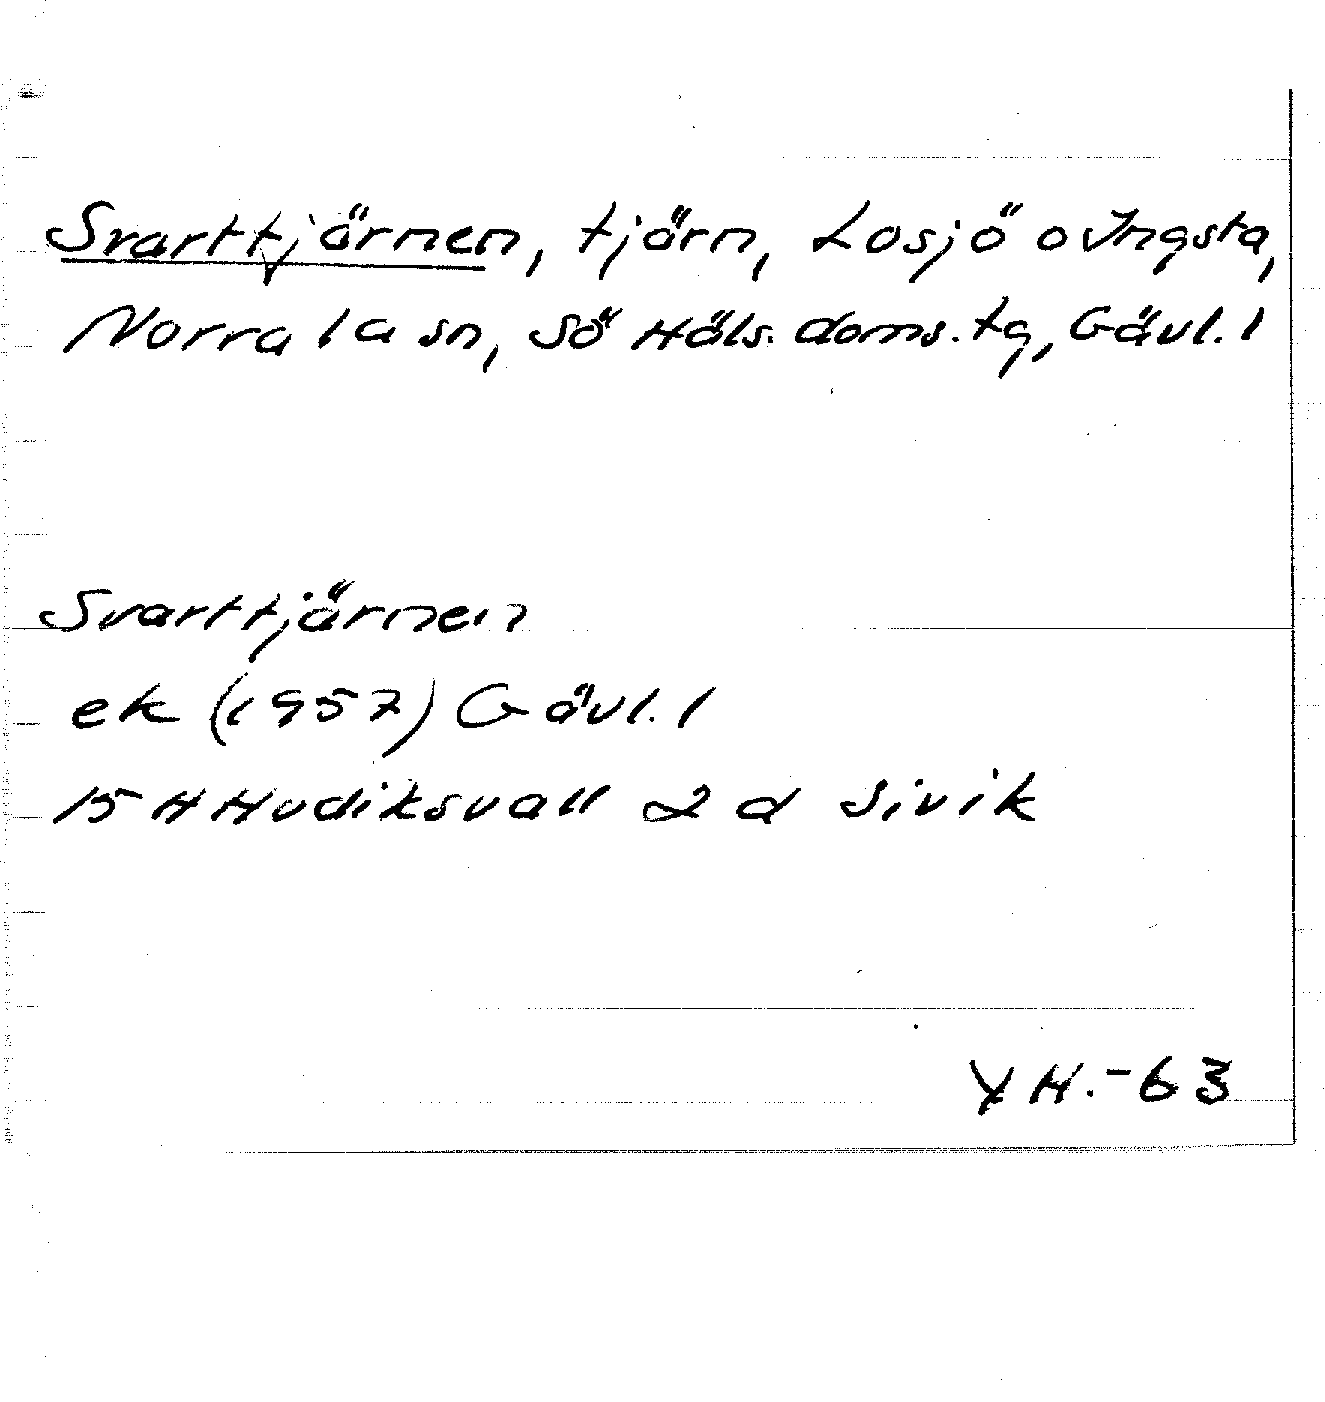 Svarttjärnen, tjärn, Losjö o Yngsta,
Norrala sn, Sö Häls. doms.tg, Gävl. l
Svarttjärnen
ek (1957) Gävl. l
15 H Hudiksvall 2 d Sivik
Y H. -63